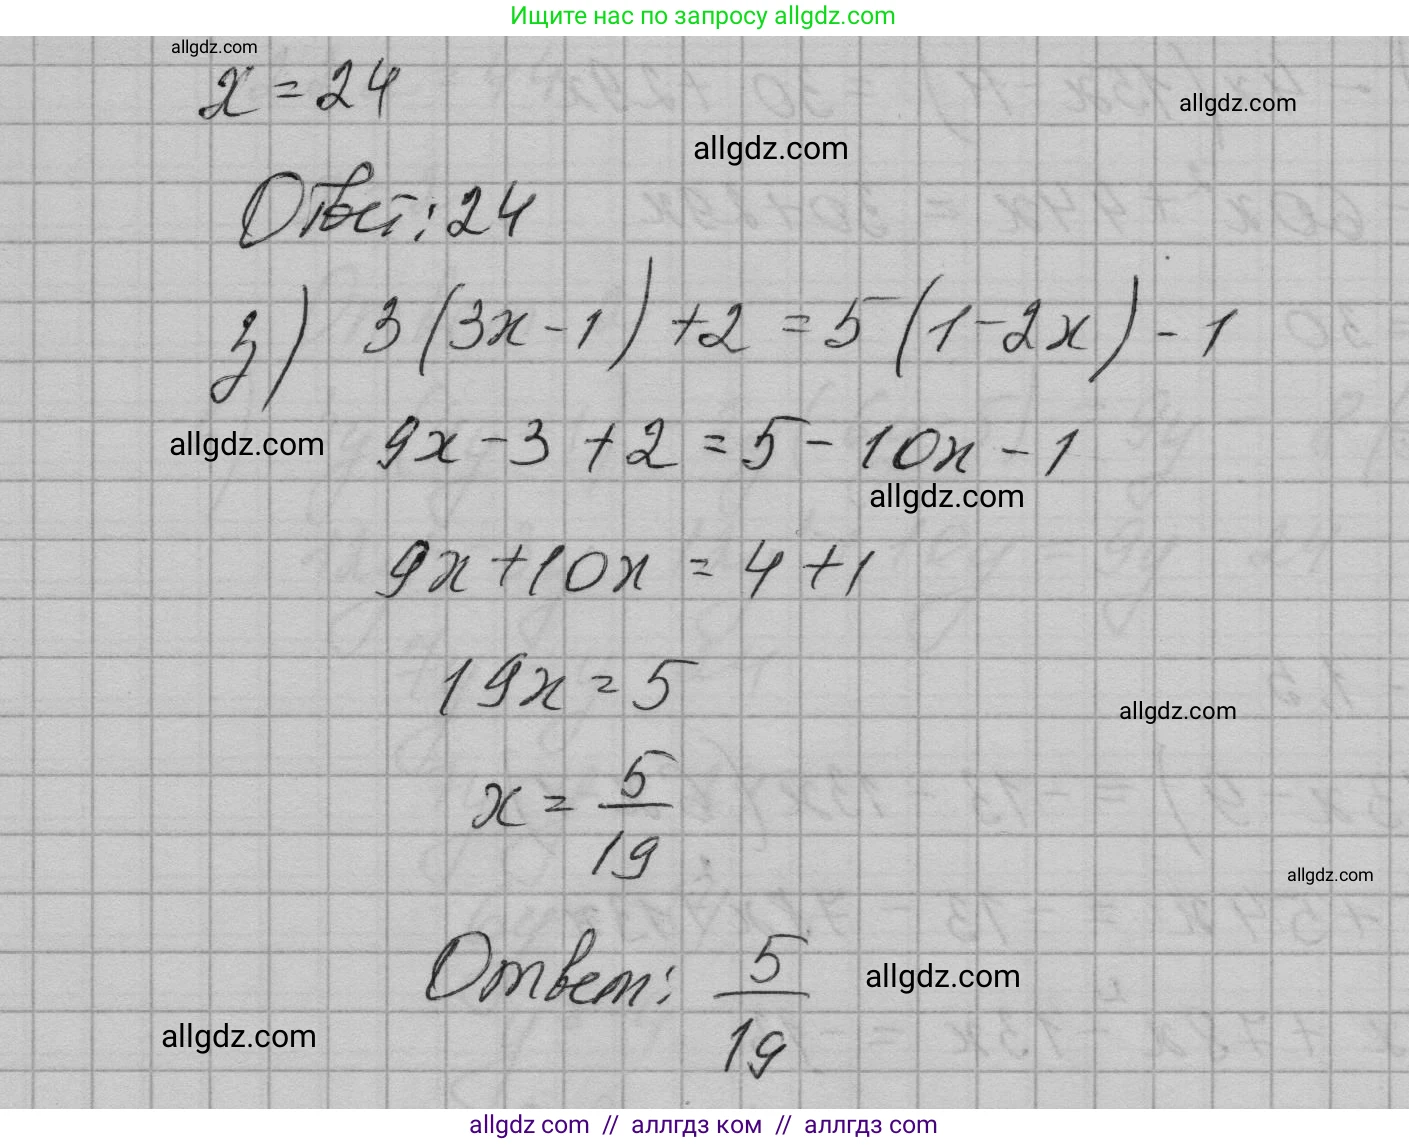 Ищите нас по запросу allgdz.com
allgdz.com
x = 24
allgdz.com
allgdz.com
Ответ: 24
з) 3(3x-1)+2 = 5(1-2x)-1
allgdz.com
9x-3+2 = 5-10x-1
allgdz.com
9x+10x = 4+1
19x = 5
allgdz.com
x = 5/19
allgdz.com
Ответ: 5/19
allgdz.com
allgdz.com
allgdz.com // аллгдз ком // аллгдз.com